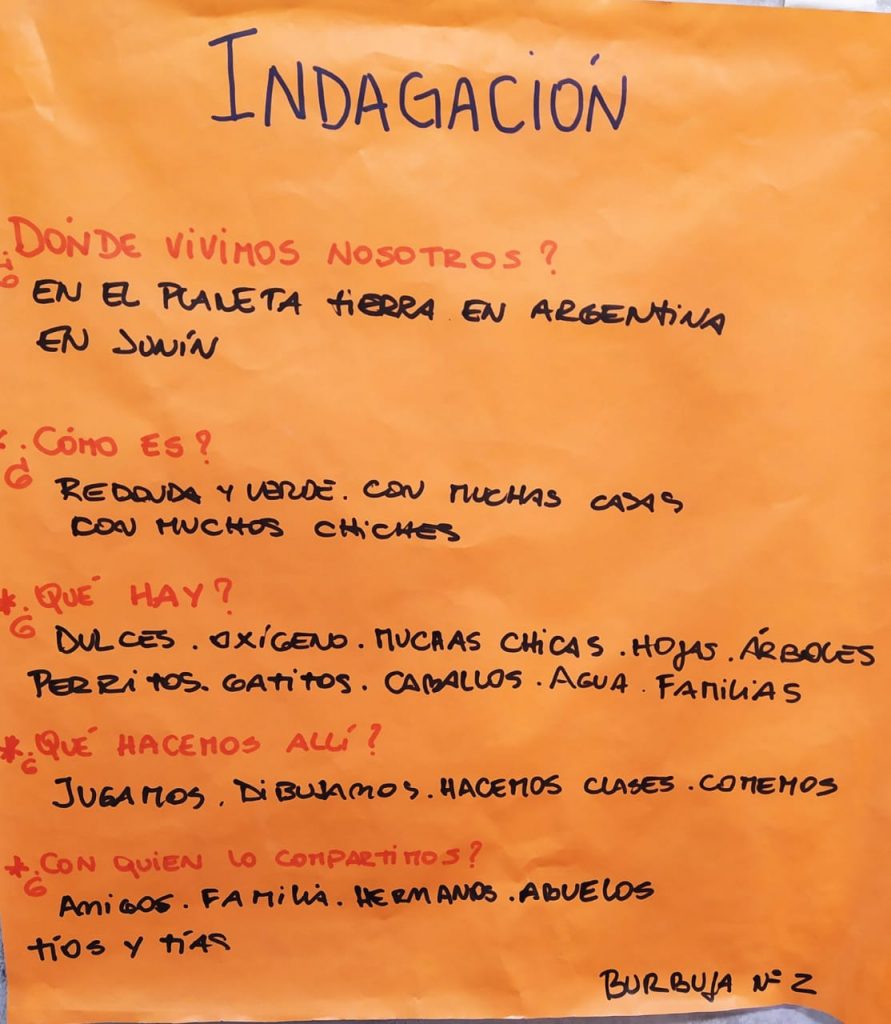 INDAGACIÓN
¿DÓNDE VIVIMOS NOSOTROS?
EN EL PLANETA TIERRA EN ARGENTINA
EN JUNÍN
*¿CÓMO ES?
REDONDA Y VERDE. CON MUCHAS CASAS
CON MUCHOS CHICHES
*¿QUÉ HAY?
DULCES. OXÍGENO. MUCHAS CHICAS. HOJAS. ÁRBOLES
PERRITOS. GATITOS. CABALLOS. AGUA. FAMILIAS
*¿QUÉ HACEMOS ALLÍ?
JUGAMOS. DIBUJAMOS. HACEMOS CLASES. COMEMOS
*¿CON QUIEN LO COMPARTIMOS?
AMIGOS. FAMILIA. HERMANOS. ABUELOS
TÍOS Y TÍAS
BURBUJA Nº 2